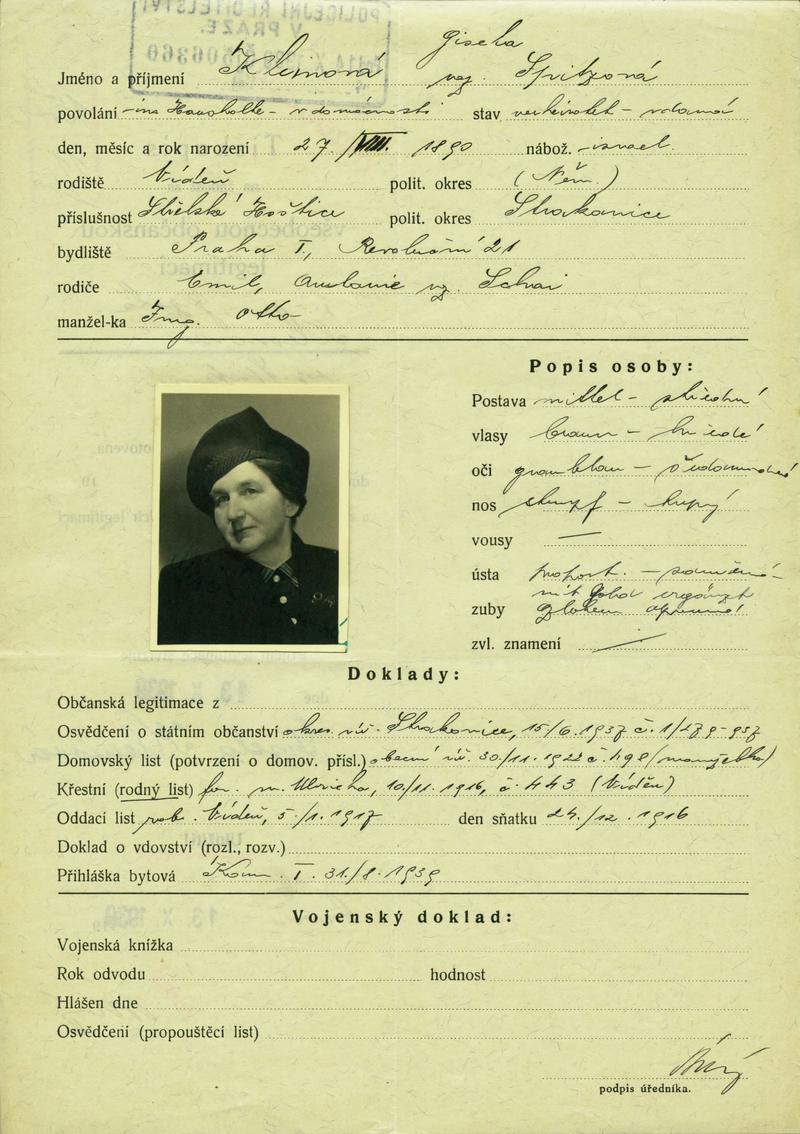 Gisela
Jméno a příjmení Kleinová roz. Spitzová
povolání im Haushalte - v domácnosti stav verheiratet - vdaná
den, měsíc a rok narození 27/VIII. 1890 nábož. israel.
rodiště Vídeň polit. okres (Něm.)
příslušnost Střelské Hoštice polit. okres Strakonice
bydliště Praha I., Revoluční 21
rodiče Emil,
manžel-ka Ing. Otto
Popis osoby:
Postava mittel - střední
vlasy braun - hnědé
oči graublau - šedomodré
nos stumpf - tupý
vousy —
ústa proport. - souměrná
mit Gold ergänzt
zuby
zvl. znamení —
Doklady:
Občanská legitimace z
Osvědčení o státním občanství okres. úř. Strakonice, 15/6. 1937 č. 1/279-937
Domovský list (potvrzení o domov. přísl.) obecní úř. 30/11. 1922 č. 498/manžela/
Křestní (rodný list) 10/11. 1916, č. 443 (Vídeň)
Oddací list Vídeň, 5./1. 1917 den sňatku 24./12. 1916
Doklad o vdovství (rozl., rozv.)
Přihláška bytová Kom. I. 31./8. 1939
Vojenský doklad:
Vojenská knížka
Rok odvodu hodnost
Hlášen dne
Osvědčení (propouštěcí list)
podpis úředníka.